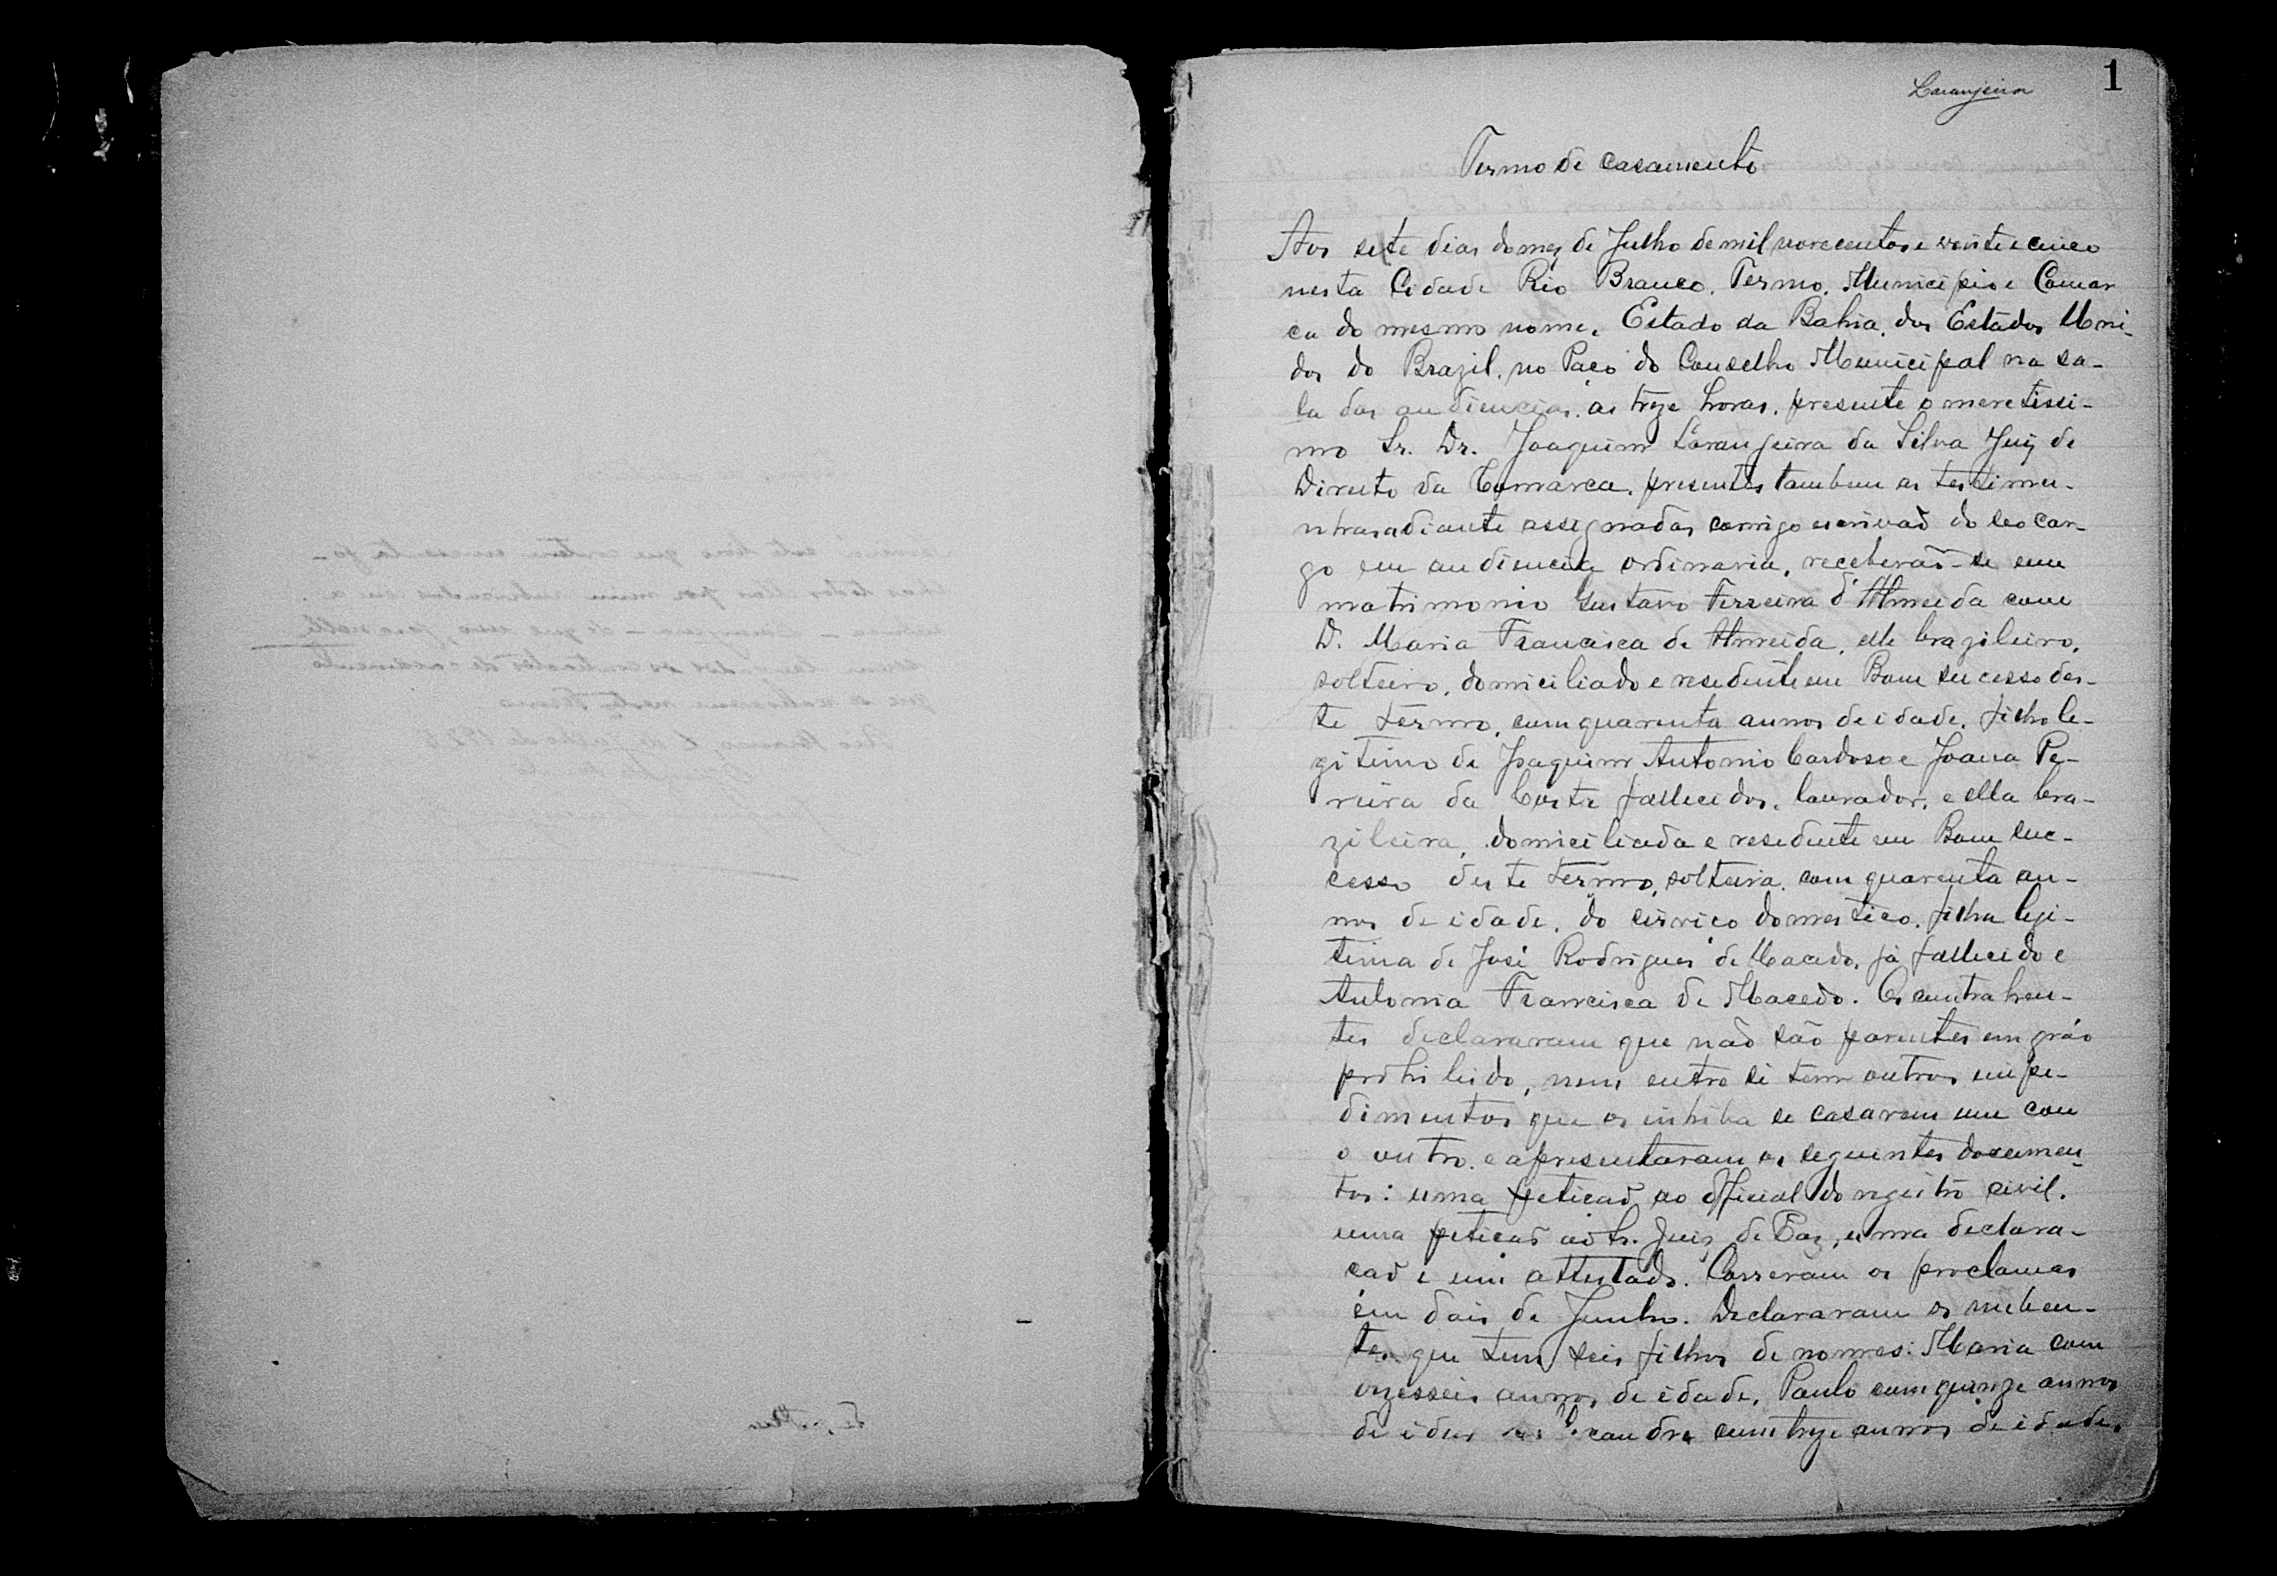 Laranjeira
1
Termo de casamento
Aos sete dias do mez de Julho de mil novecentos e vinte e cinco
nesta Cidade Rio Branco, Termo, Municipio e Comar
ca do mesmo nome, Estado da Bahia, dos Estados Uni-
dos do Brazil, no Paço do Conselho Municipal na sa-
la das audiencias, as treze horas, presente o meretissi-
mo Sr. Dr. Joaquim Laranjeira da Silva Juiz de
Direito da Comarca, presentes tambem as testimu-
nhas adiante assignadas comigo escrivaõ do seo car-
go em audiencia ordinaria, receberaõ-se em
matrimonio Gustavo Ferreira d'Almeida com
D. Maria Francisca de Almeida, elle brazileiro,
solteiro, domiciliado e residente em Bom successo des-
te termo, com quarenta annos de idade, filho le-
gitimo de Joaquim Antonio Cardoso e Joana Pe-
reira da Costa fallecidos, lavrador, e ella bra-
zileira, domiciliada e residente em Bom suc-
cesso deste termo, solteira, com quarenta an-
nos de idade, do cirviço domestico, filha legi-
tima de José Rodrigues de Macedo, já fallecido e
Antonia Francisca de Macedo. Os contrahen-
tes declararam que não são parentes em gráo
prohibido, nem entre si tem outros impe-
dimentos que os inhiba se casarem um com
o outro, e apresentaram os seguintes documen-
tos: uma petiçaõ ao official do registro civil,
uma petiçaõ ao Sr. Juiz de Paz, uma declara-
çaõ e um attestado. Correram os proclamas
em dois de Junho. Declararam os nuben-
tes que tem seis filhos de nomes: Maria com
dezesseis annos de idade, Paulo com quinze annos
com treze annos de idade,